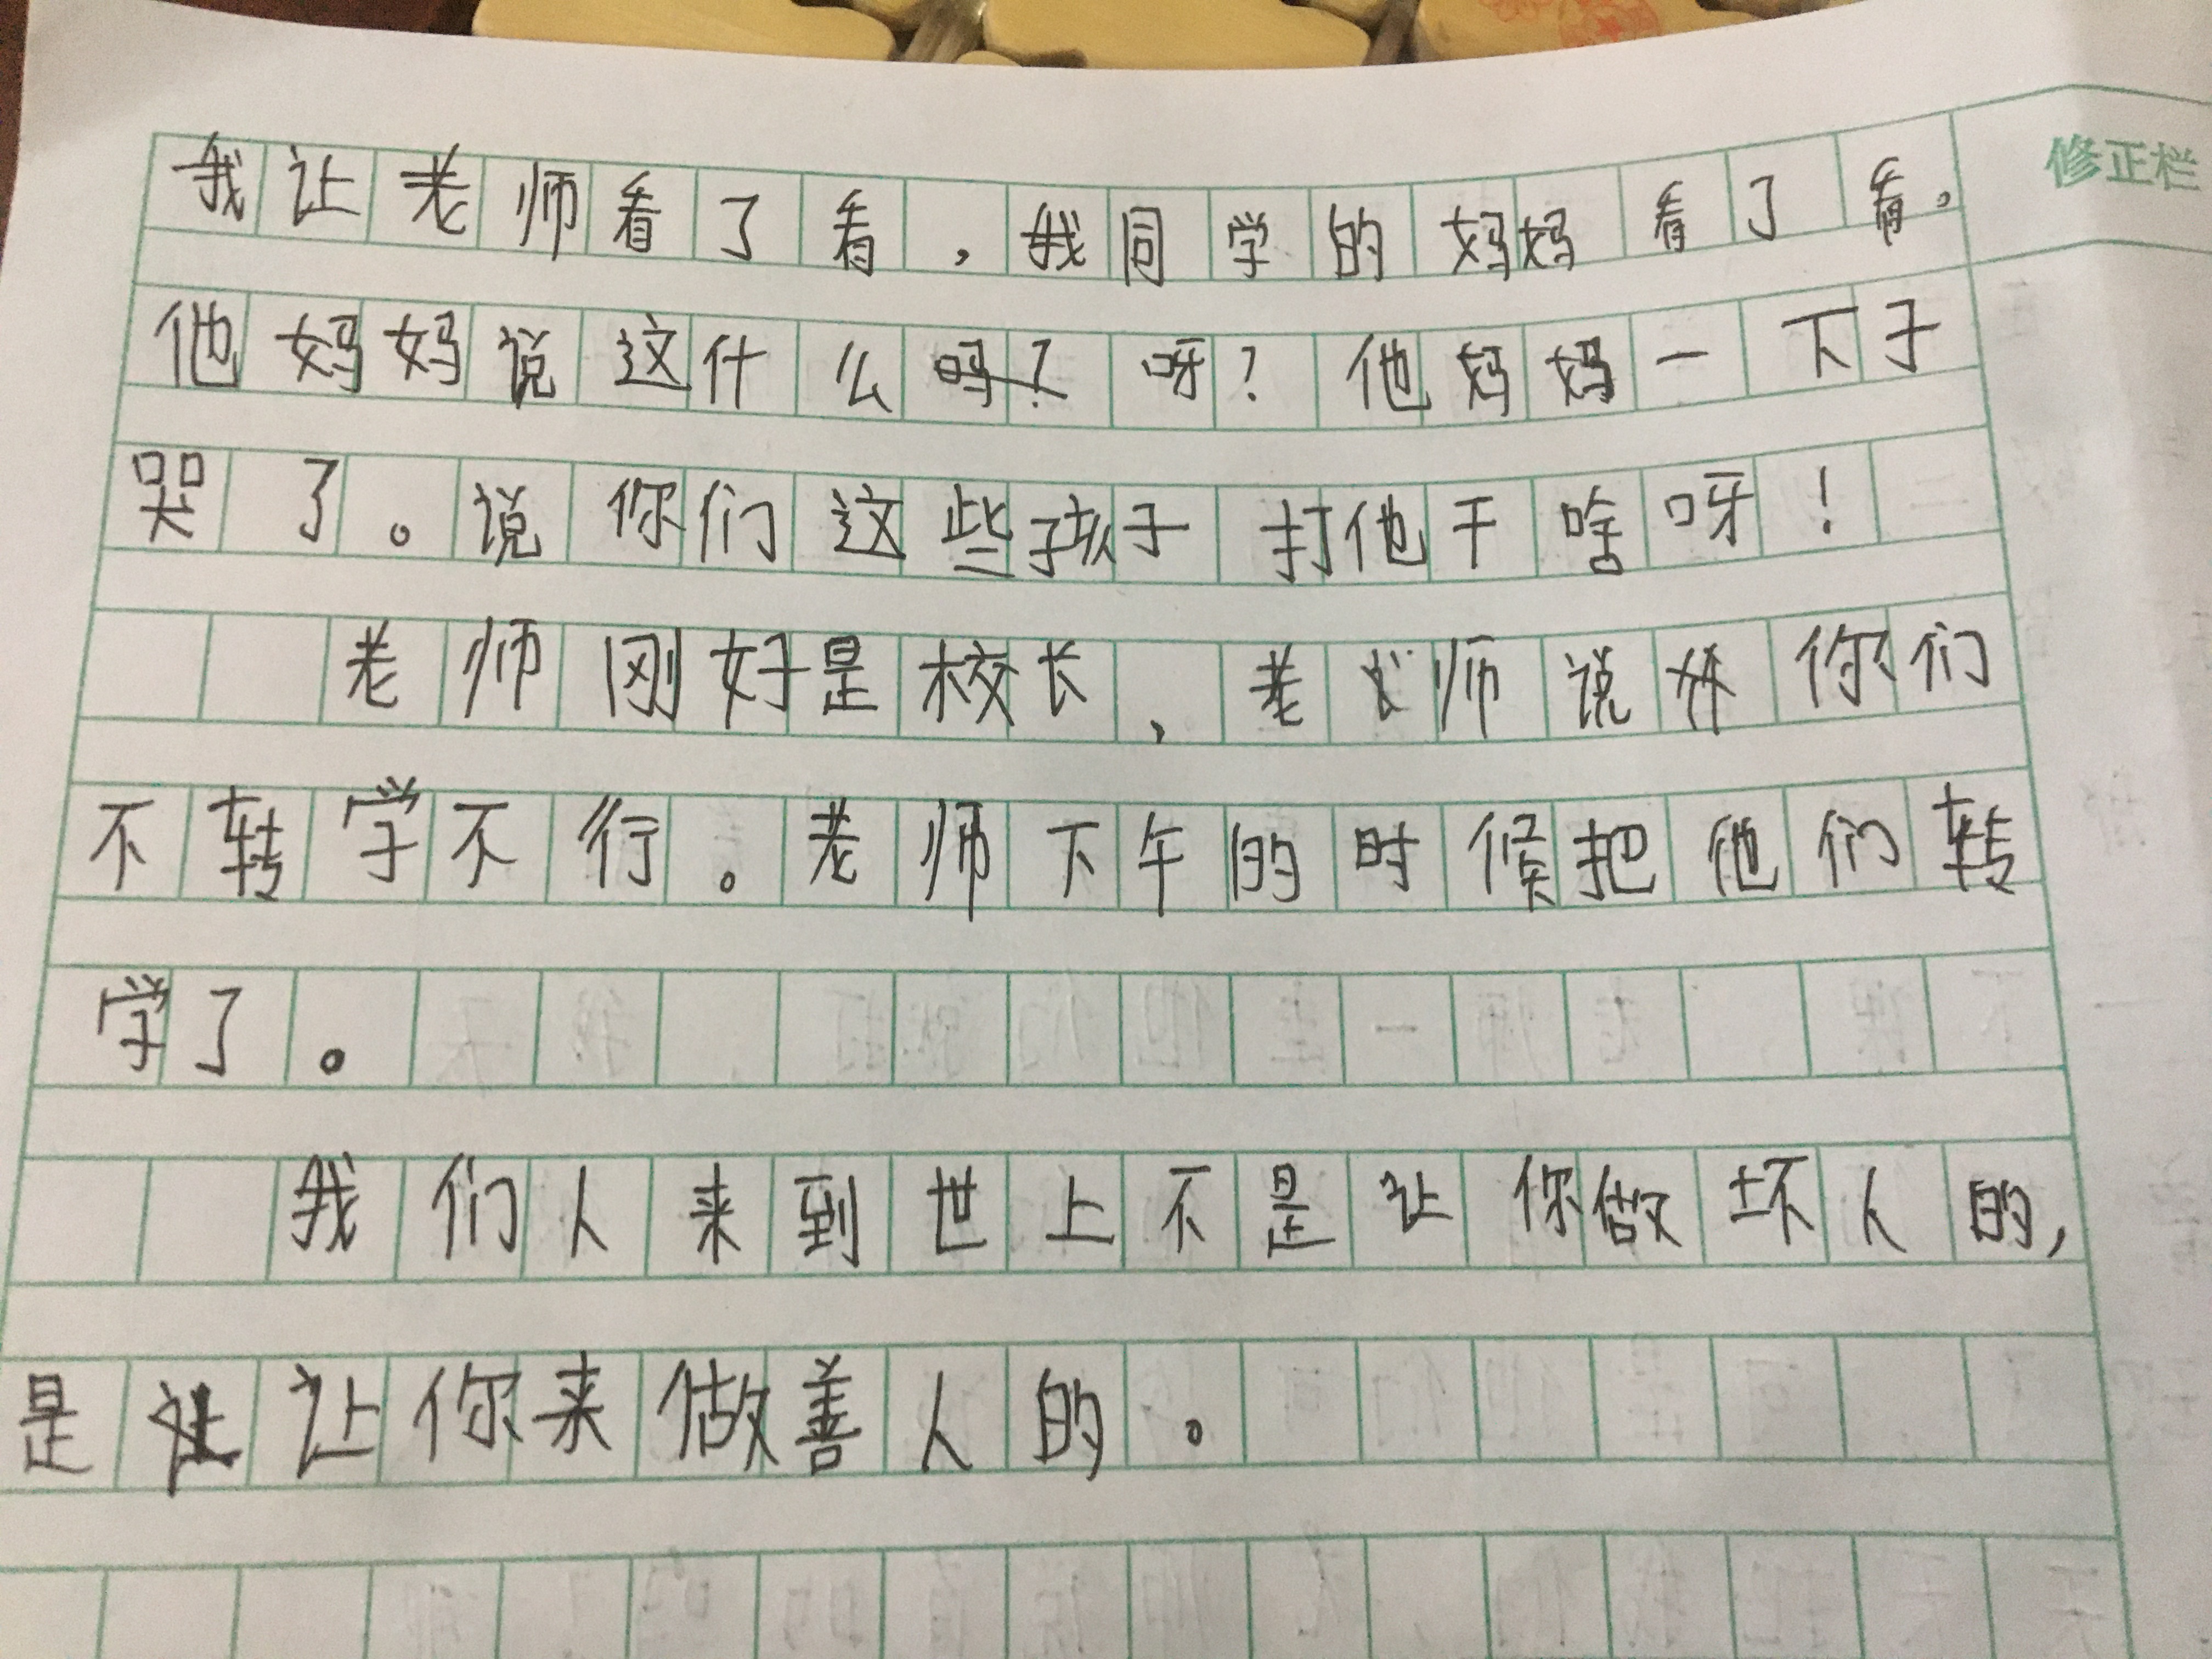 修正栏
我让老师看了看，我同学的妈妈看了看。
他妈妈说这什么吗？呀？他妈妈一下子
哭了。说你们这些孩子打他干啥呀！
老师刚好是校长，老师说你们
不转学不行。老师下午的时候把他们转
学了。
我们人来到世上不是让你做坏人的，
是让你来做善人的。